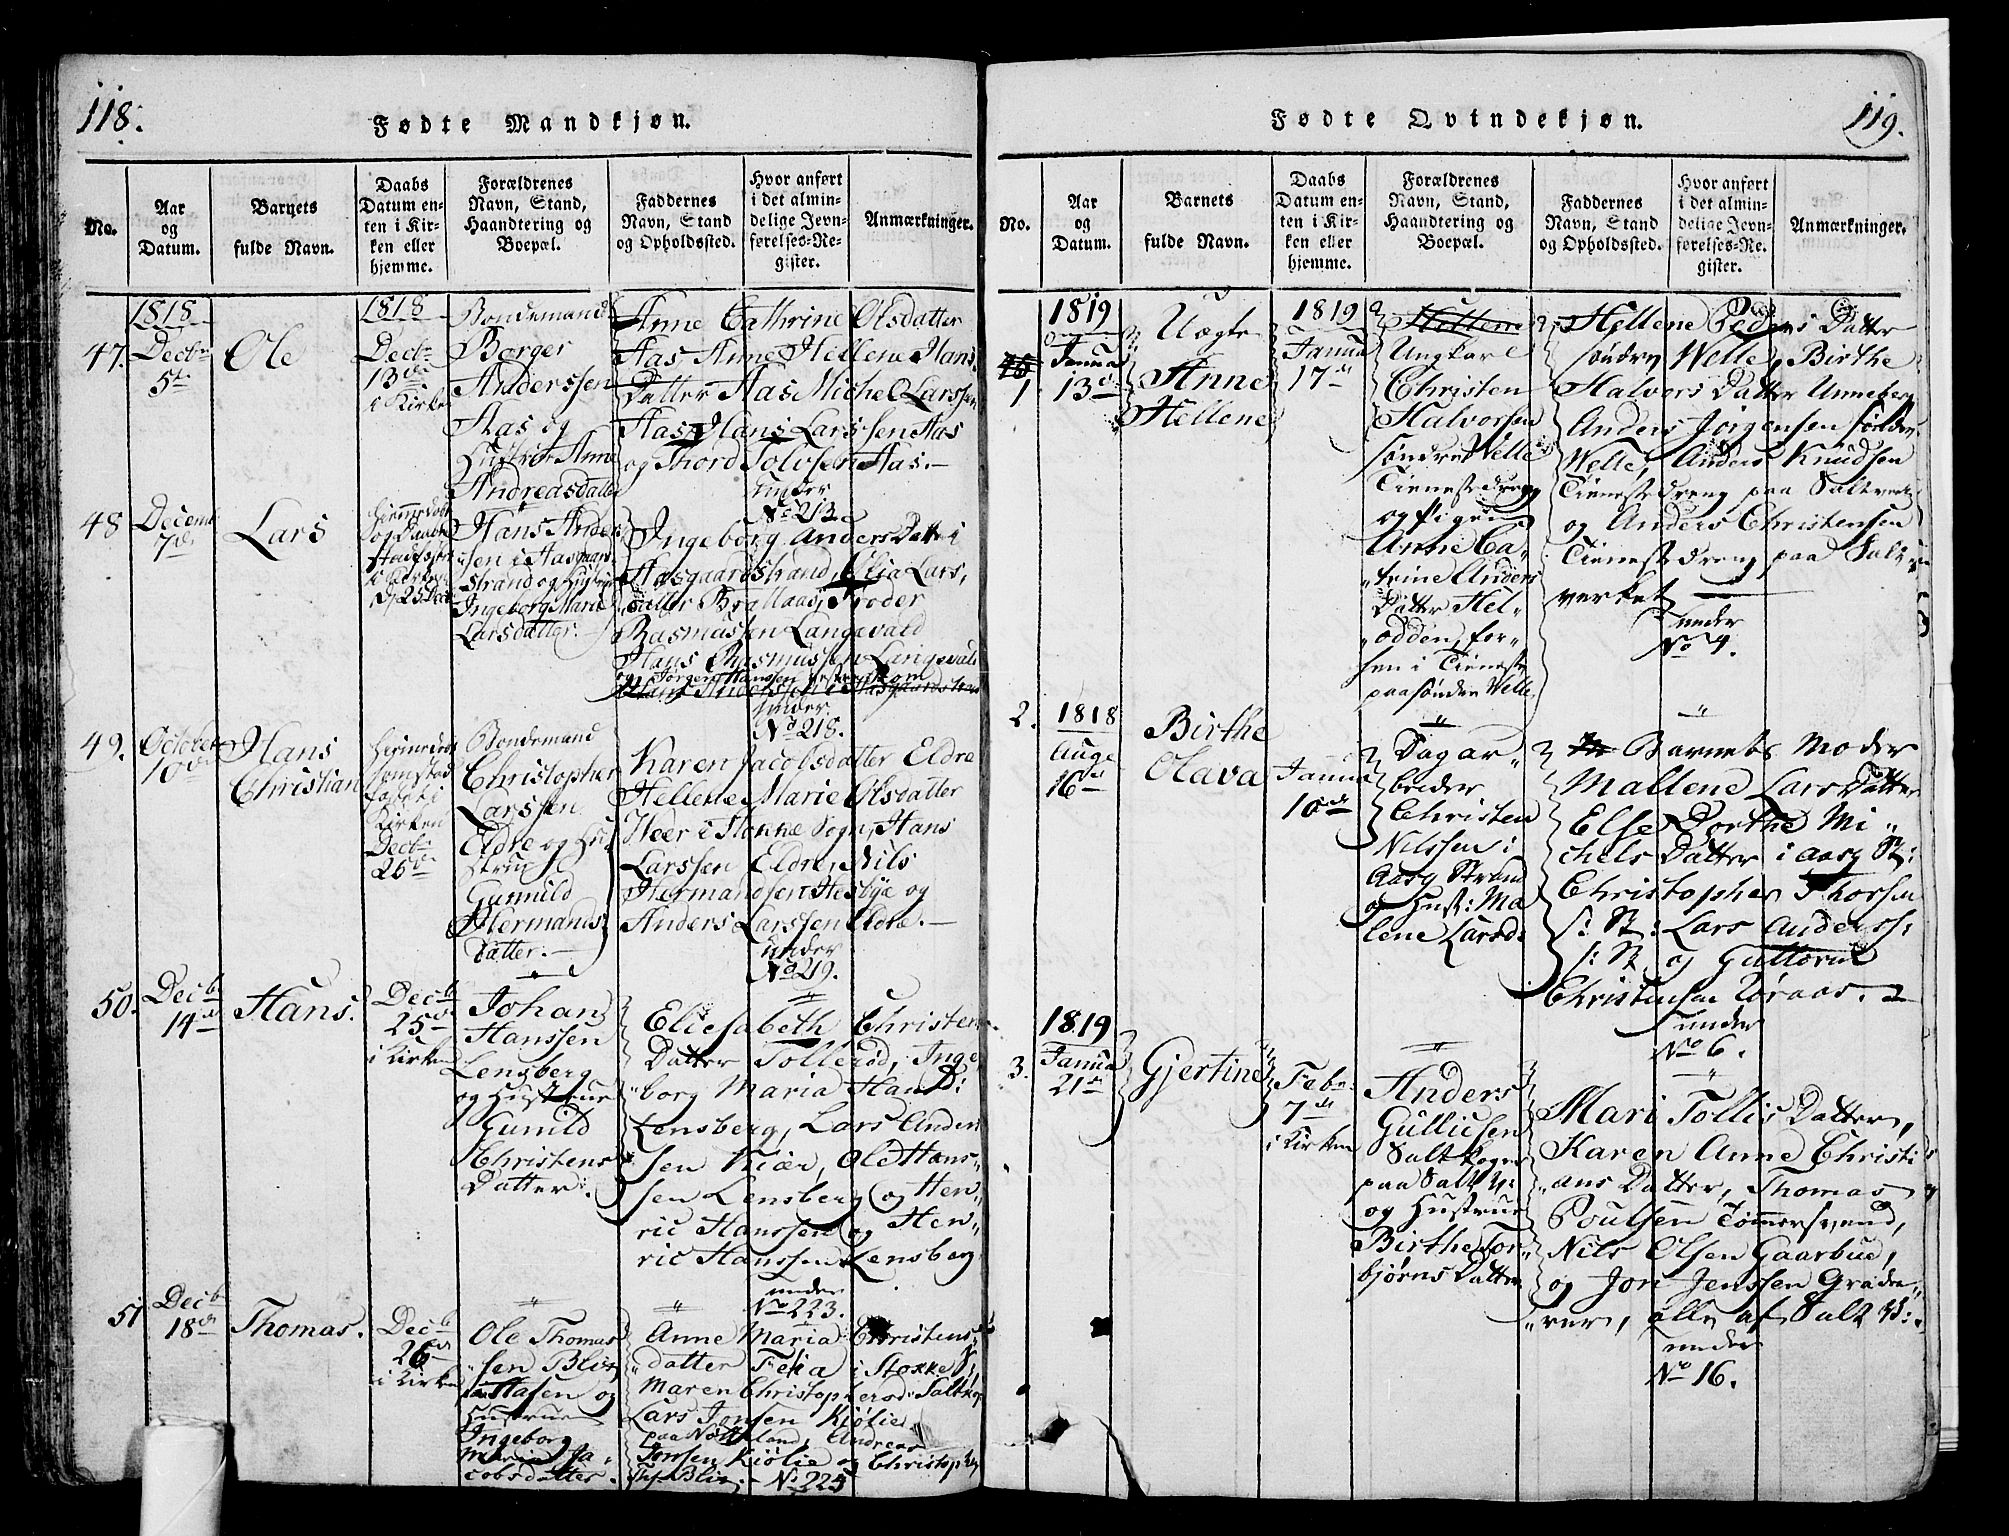 118.
Fødte Mandkjøn.
No.
Aar
og
Datum.
Barnets
fulde Navn.
Daabs
Datum en-
ten i Kir-
ken eller
hjemme.
Forældrenes
Navn, Stand,
Haandtering og
Boepæl.
Faddernes
Navn, Stand
og Opholdssted.
Hvor anført
i det almin-
delige Jevn-
førelses-Re-
gister.
Anmærkninger.
47.
1818
Decbr
5te
Ole
1818
Decbr
13de
i Kirken
Bondemand
Borger
Anderssen
Aas og
Hustrue Anne
Andreasdatter
Anne Cathrine Olsdatter
Aas Anne Hellene Hans
Datter Aas Michel Larssen
Aas, Hans Larssen Aas
og Thord Tolvsen Aas.—
under
No 213.
48
Decemb
7de
Lars
i Kirken
d. 25 Dec
Hans Ander
sen i Aasgaard
strand og Hustrue
Ingeborg Marie
Larsdatter.
Ingeborg Anders Datter i
Aasgaardstrand, Lars
datter Bratlaas,
Rasmussen Langevald
Hans Rasmussen Langevald
og Jørgen Hanssen
Hans Anderssen i Aasgaardstrand
under
No 218.
49.
October
10de
Hans
Christian
Kirken
Decbr
26de
Bondemand
Christopher
Larssen
Eldre og Hu
strue
Gunnild
Hermands
Datter.—
Karen Jacobsdatter Eldre
Hellene Marie Olsdatter
Weer i Stokke Sogn, Hans
Larssen Eldre, Nils
Hermandsen Hesbye og
Anders Larssen Eldre.—
under
No 219.
50.
Decbr
14de
Hans.
Decb
25de
i Kirken
Johan
Hanssen
Lensberg
og Hustrue
Gunild
Christens
Datter.
Eliesabeth Christens
Datter Tollerød, Inge
"borg Maria Hans D:
Lensberg, Lars Ander
sen Kiær, Ole Hans"
sen Lensberg og Hen"
ric Hanssen og Hen"
ric Hanssen Lensberg
under
No 223.
51
Decb
18de
Thomas.
Decb
26de
i Kirken
Ole Thomas
sen Blix
og
Hustrue
Ingeborg
Maria Ja
cobsdatter.
Anne Maria Christens
"datter i Stokke S:
Maren Christophersd:
Lars Jonsen Kiølie
paa Nøtteland, Andreas
Jonsen Kiølie og Christopher
Blix.— No 225
119.
Fødte Qvindekjøn.
No.
Aar
og
Datum.
Barnets
fulde Navn.
Daabs
Datum en-
ten i Kir-
ken eller
hjemme.
Forældrenes
Navn, Stand,
Haandtering og
Boepæl.
Faddernes
Navn, Stand
og Opholdssted.
Hvor anført
i det almin-
delige Jevn-
førelses-Re-
gister.
Anmærkninger.
1
1819
Janua
13de
Uægte
Anne
Hellene
1819
Janua
17de
Hellene
Ungkarl
Christen
Halvorsen
søndre Welle
Tienestedreng
og Pigen
Anne Ca"
"trine Anders
Datter Hel"
"odden, for"
sen i Tieneste
paa søndre Welle
Hellene Peders Datter
søndre Welle, Birthe
Halvors Datter Unneberg
Anders Jørgensen søndre
Welle, Anders Knudsen
Tienestedreng paa Saltverk
og Anders Christensen
Tienestedreng paa Salt
verket
under
No 4.
2.
1818
Auge
16de
Birthe
Olava
Janua
10de
Dagar"
beider
Christen
Nilssen i
Aasg Strand
og Hust: Ma
lene Larsd:
Barnets Moder
Mallene Lars Datter
Else Dorthe Mi"
chels Datter i Aasg St:
Christopher Thorsen
i: St: Lars Anderss:
i: St og Guttorm
Christensen Toraas.
under
No 6.
3.
1819
Janua
21de
Gjertine
Feb:
7de
i Kirken
Anders
Gulliesen
Saltkoger
paa Salt V:
og Hustrue
Birthe Tor"
bjørns Datter
Mari Tollis Datter,
Karen Anne Christi
"ans Datter, Thomas
Poulsen Tømmersvend,
Nils Olsen Gaarbue,
og Jon Jenssen Grade"
"ver, alle af Salt V:
under
No 16.